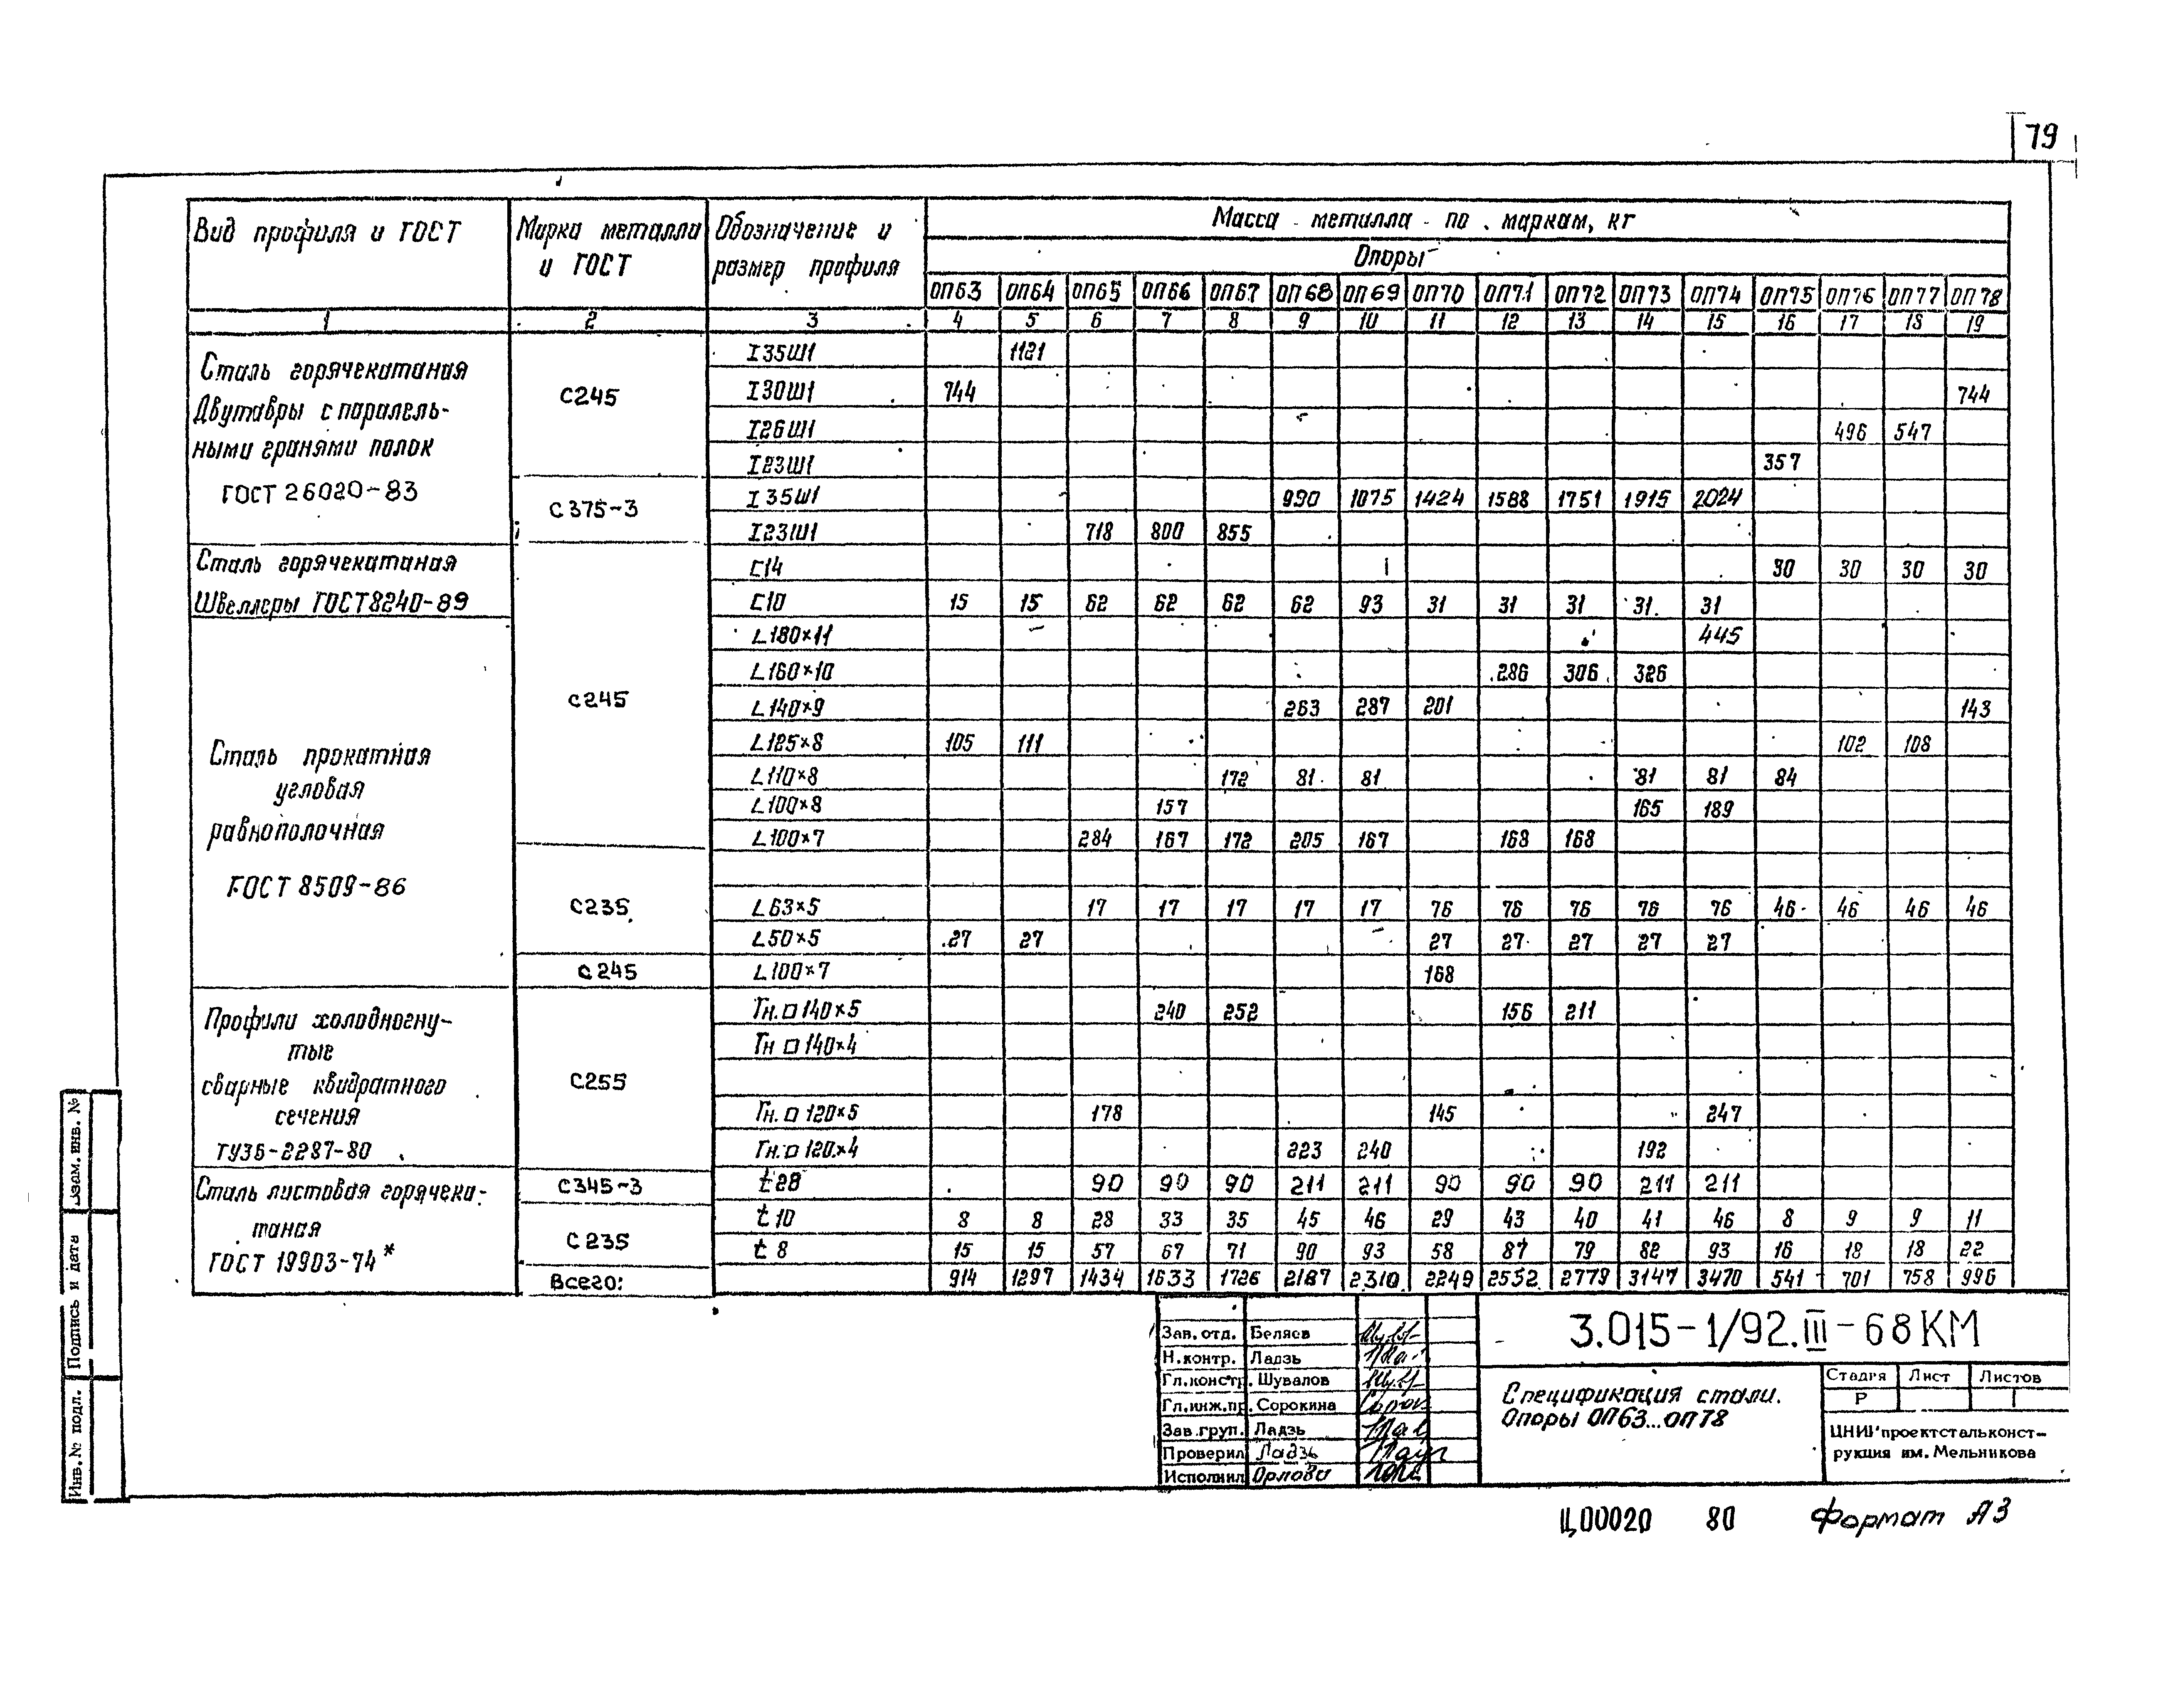 79
Вид профиля и ГОСТ Марка металла и ГОСТ Обозначение и размер профиля Масса металла по маркам, кг
Опоры
ОП63 ОП64 ОП65 ОП66 ОП67 ОП68 ОП69 ОП70 ОП71 ОП72 ОП73 ОП74 ОП75 ОП76 ОП77 ОП78
1 2 3 4 5 6 7 8 9 10 11 12 13 14 15 16 17 18 19
Сталь горячекатаная
Двутавры с паралель-
ными гранями полок
ГОСТ 26020-83
С245
I35Ш1 1121
I30Ш1 744 744
I26Ш1 496 547
I23Ш1 357
С375-3
I35Ш1 990 1075 1424 1588 1751 1915 2024
I23Ш1 718 800 855
Сталь горячекатаная
Швеллеры ГОСТ8240-89
С245
[14 30 30 30 30
[10 15 15 62 62 62 62 93 31 31 31 31 31
Сталь прокатная
угловая
равнополочная
ГОСТ 8509-86
L180×11 445
L160×10 286 306 326
L140×9 263 287 201 143
L125×8 105 111 102 108
L110×8 172 81 81 81 81 84
L100×8 157 165 189
L100×7 284 167 172 205 167 168 168
С235
L63×5 17 17 17 17 17 76 76 76 76 76 46 46 46 46
L50×5 27 27 27 27 27 27 27
С245
L100×7 168
Профили холодногну-
тые
сварные квидратного
сечения
ТУ36-2287-80
С255
Гн.□140×5 240 252 156 211
Гн □140×4
Гн.□120×5 178 145 247
Гн.□120×4 223 240 192
Сталь листовая горячека-
таная
ГОСТ 19903-74*
С345-3
t28 90 90 90 211 211 90 90 90 211 211
С235
t10 8 8 28 33 35 45 46 29 43 40 41 46 8 9 9 11
t8 15 15 57 67 71 90 93 58 87 79 82 93 16 18 18 22
Всего: 914 1297 1434 1633 1726 2187 2310 2249 2552 2779 3147 3470 541 701 758 996
Взам. инв. №
Подпись и дата
Инв.№ подл.
Зав. отд. Беляев
Н.контр. Ладзь
Гл.констр. Шувалов
Гл.инж.пр. Сорокина
Зав.груп. Ладзь
Проверил Ладзь
Исполнил Орлова
3.015-1/92.III-68КМ
Спецификация стали.
Опоры ОП63...ОП78
Стадия Лист Листов
Р 1
ЦНИИпроектстальконст-
рукция им. Мельникова
Ц00020 80 Формат А3